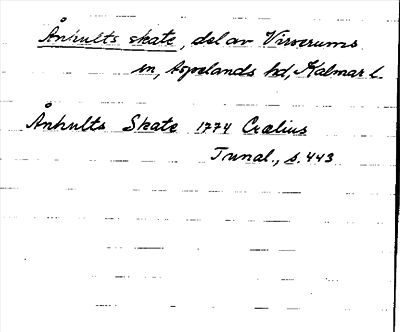 Ånhults skate, del av Virserums
sn, Aspelands hd, Kalmar l.
Ånhults Skate 1774 Crælius
Tunal., s. 443